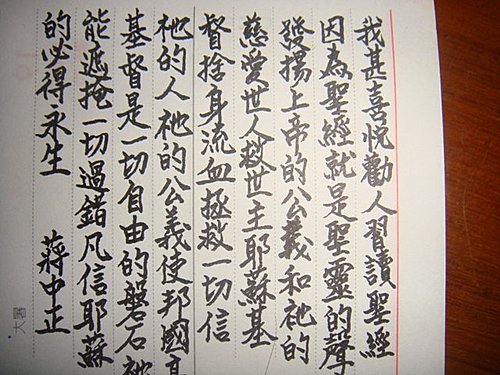 我甚喜悅勸人習讀聖經
因為聖經就是聖靈的聲
發揚上帝的公義和祂的
慈愛世人救世主耶蘇基
督捨身流血拯救一切信
祂的人祂的公義使邦國高
基督是一切自由的磐石祂
能遮掩一切過錯凡信耶蘇
的必得永生 蔣中正
大暑